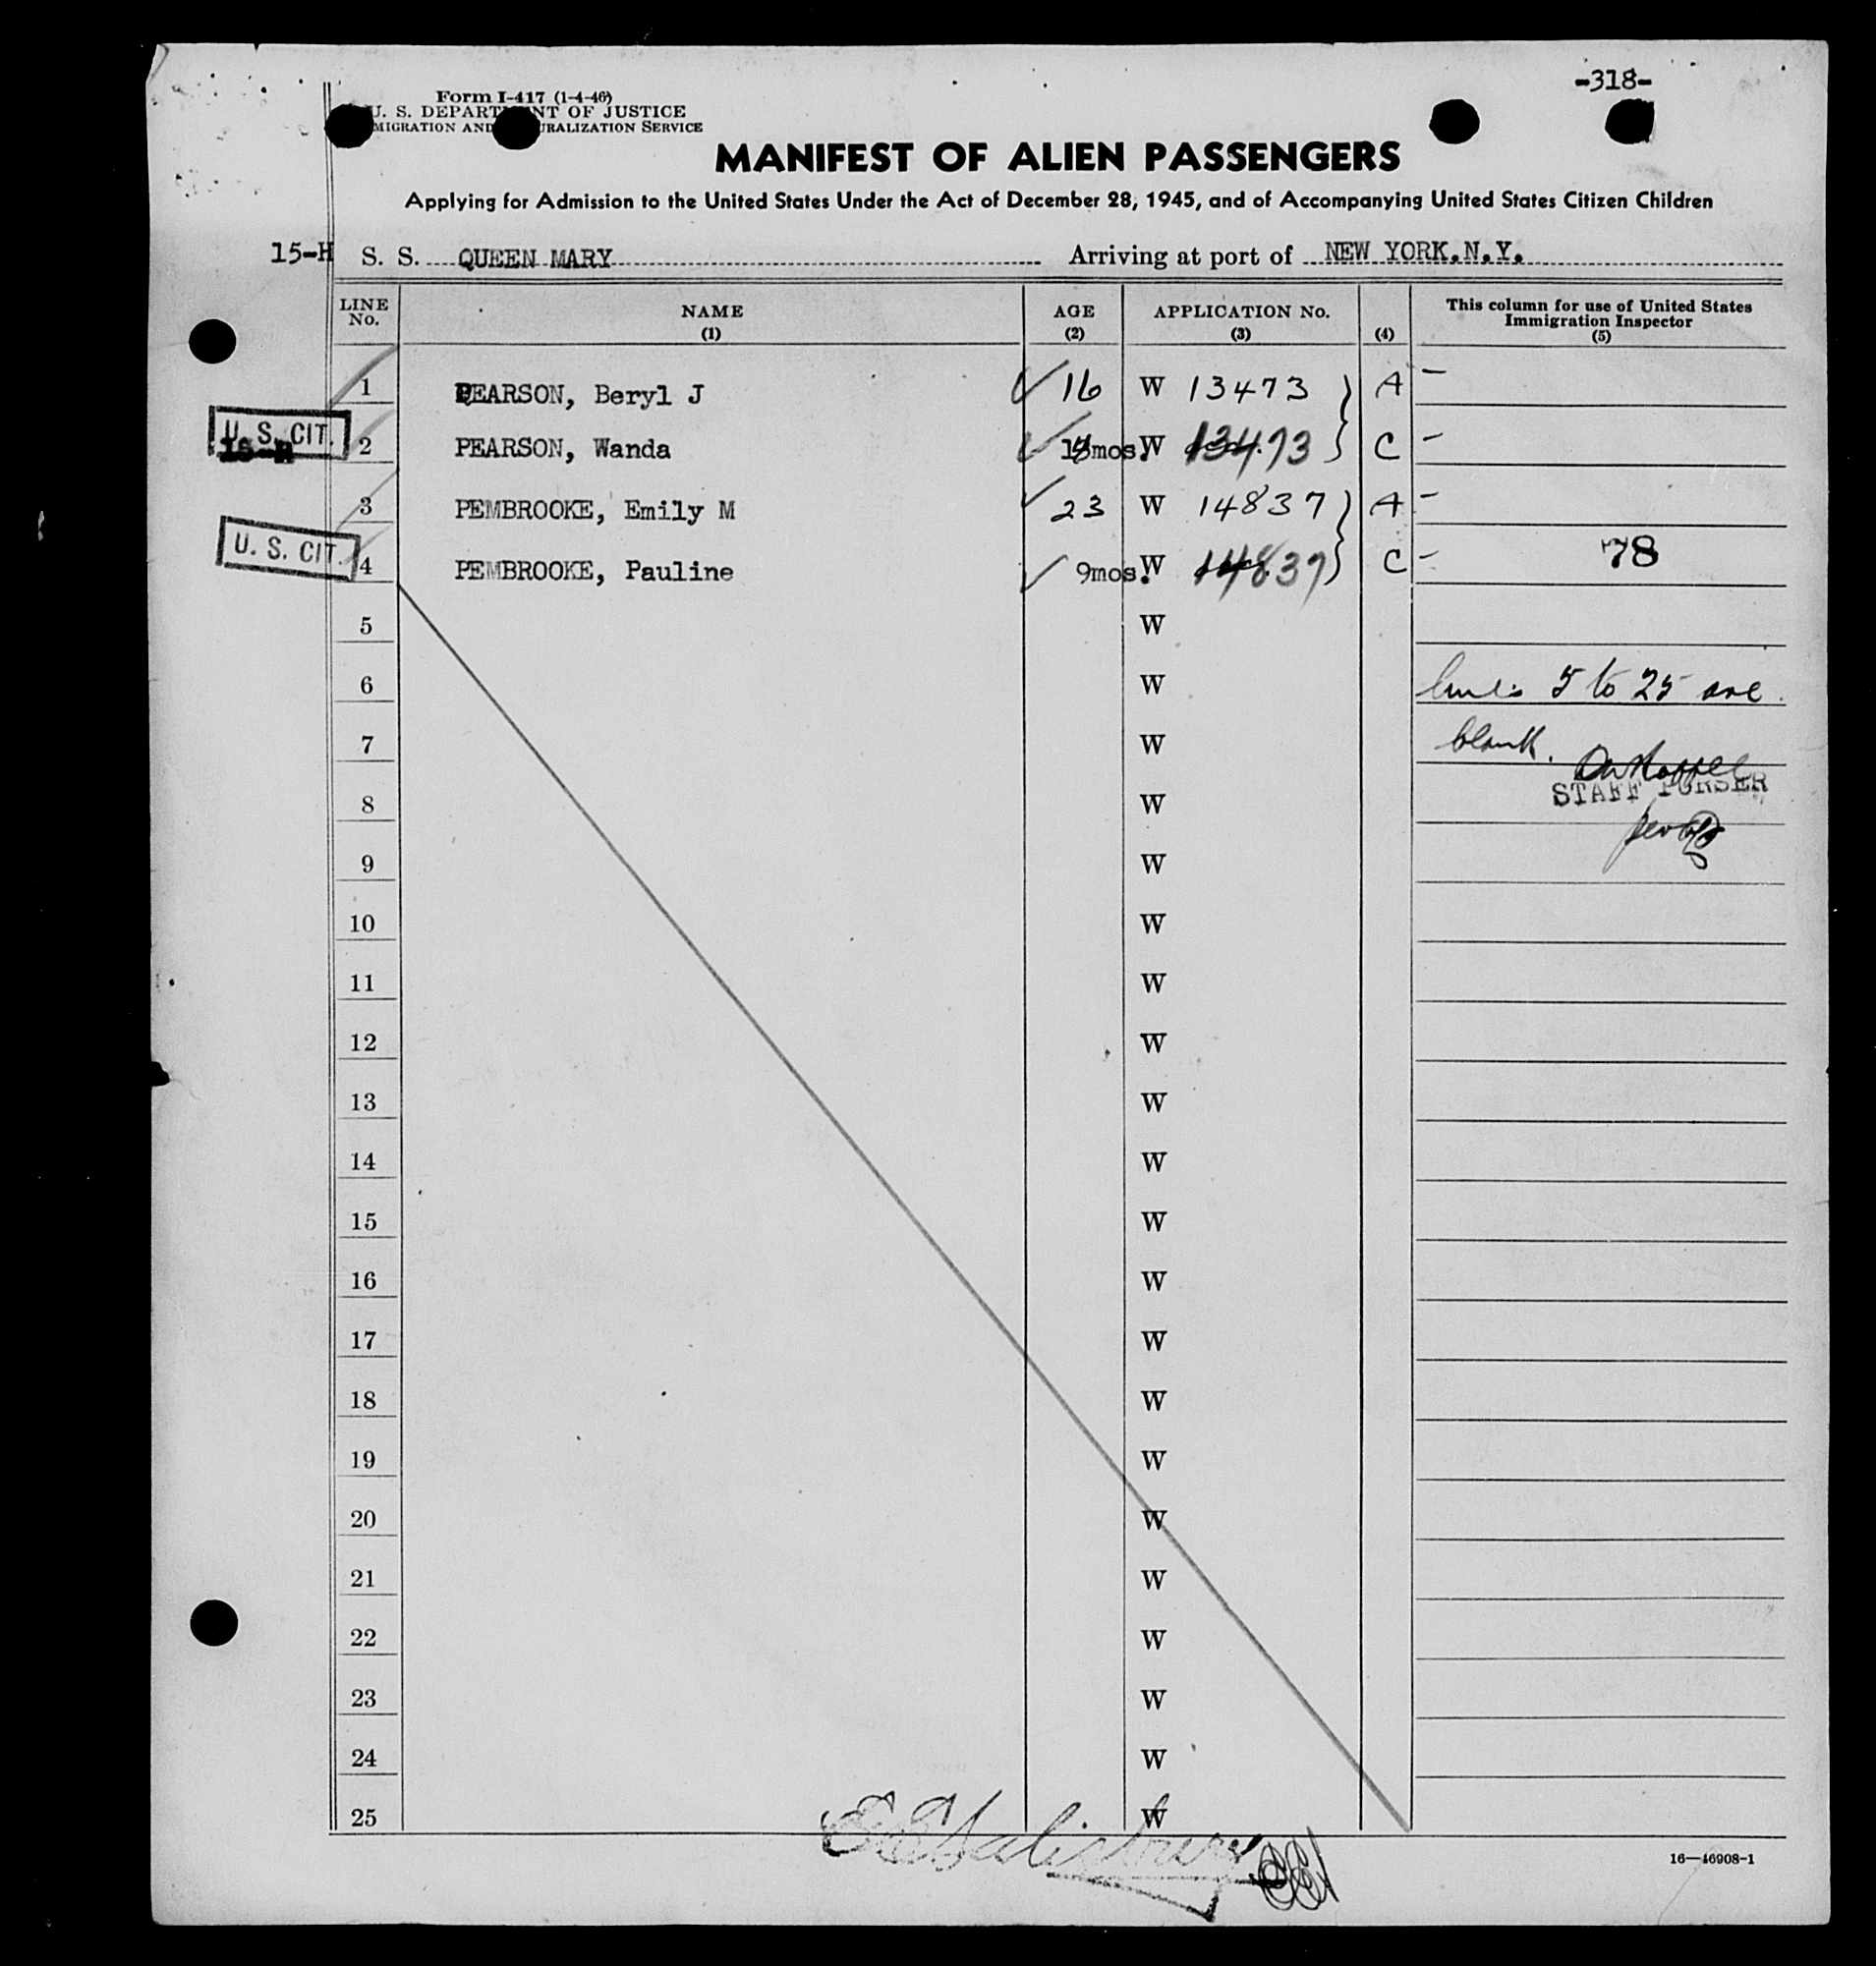 -318-
Form I-417 (1-4-46)
U. S. DEPARTMENT OF JUSTICE
MIGRATION AND URALIZATION SERVICE
MANIFEST OF ALIEN PASSENGERS
Applying for Admission to the United States Under the Act of December 28, 1945, and of Accompanying United States Citizen Children
15-H S. S. QUEEN MARY Arriving at port of NEW YORK.N.Y.
LINE No. NAME (1) AGE (2) APPLICATION No. (3) (4) This column for use of United States Immigration Inspector (5)
1 PEARSON, Beryl J 16 W 13473 A -
U. S. CIT. 15-H 2 PEARSON, Wanda mos. W 13473 C -
3 PEMBROOKE, Emily M 23 W 14837 A -
U. S. CIT. 4 PEMBROOKE, Pauline 9mos. W 14837 C - 78
5 W
6 W Lines 5 to 25 are
7 W blank.
8 W STAFF PURSER
9 W
10 W
11 W
12 W
13 W
14 W
15 W
16 W
17 W
18 W
19 W
20 W
21 W
22 W
23 W
24 W
25 W
E E Salisbury
16—46908-1